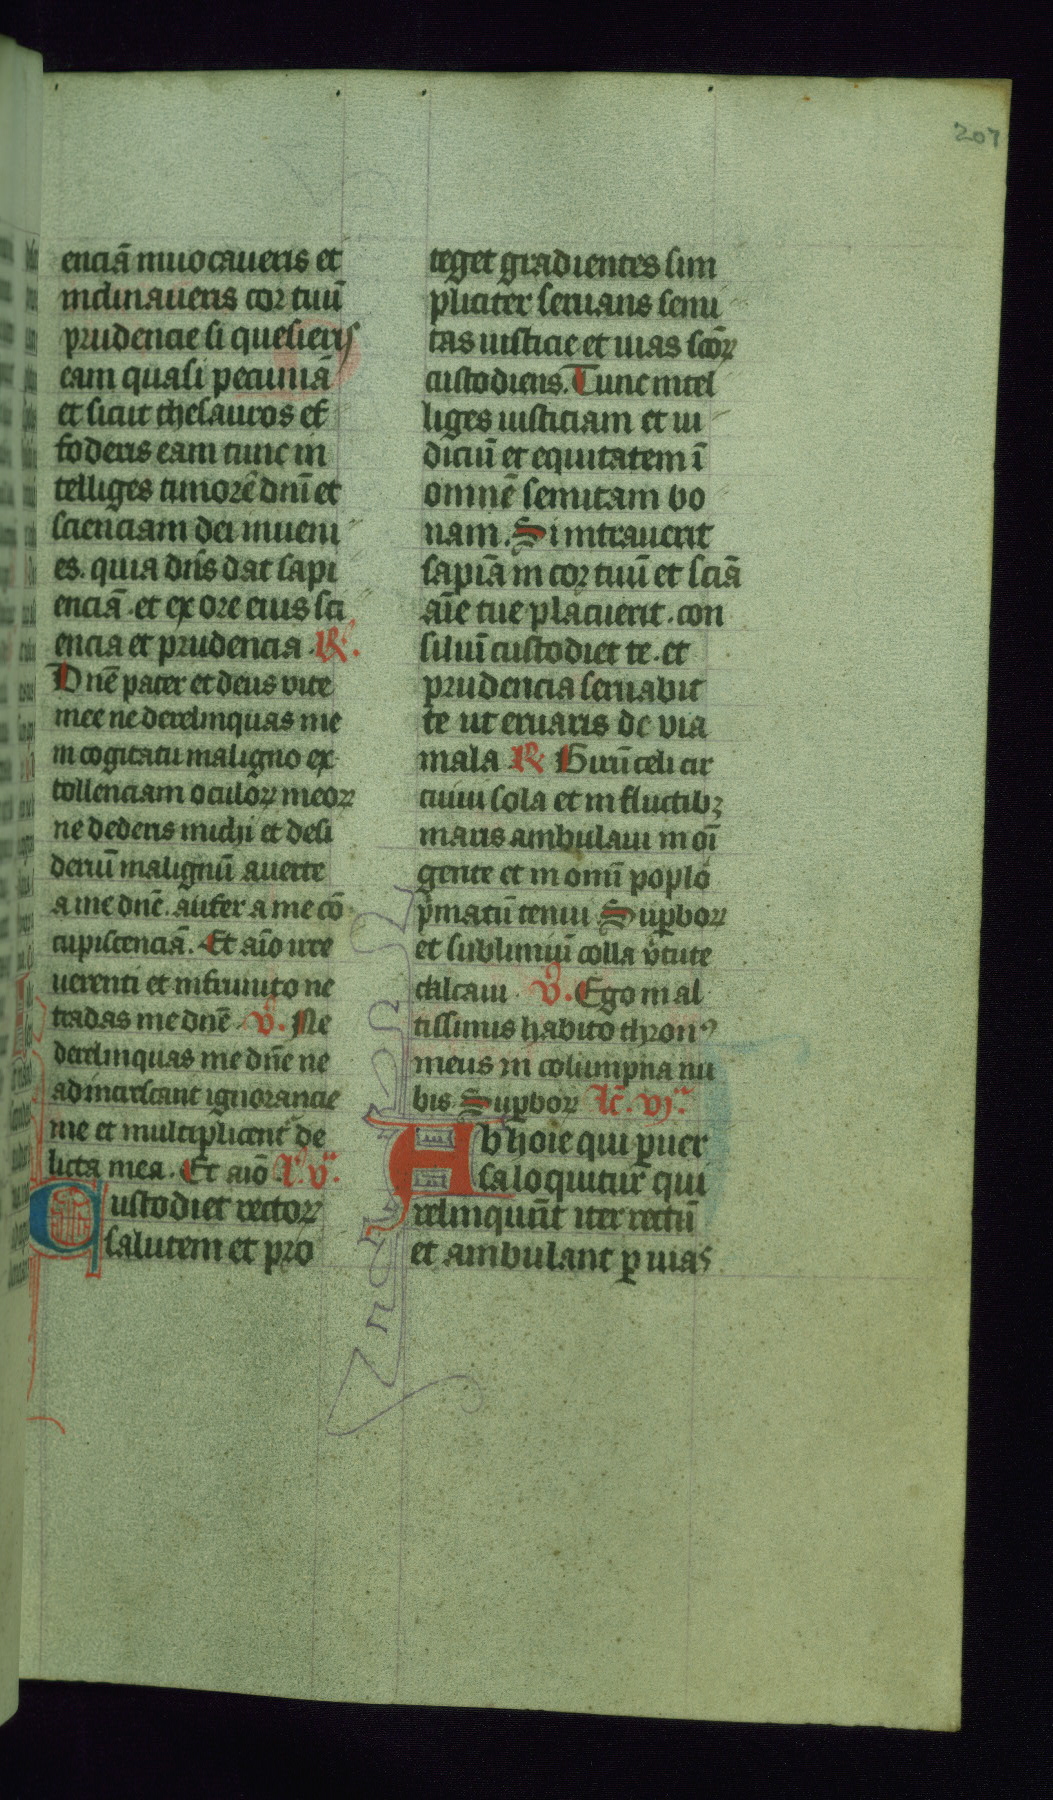 207
enciā inuocaueris et
inclinaueris cor tuū
prudencie si quesieris
eam quasi pecuniā
et sicut thesauros ef
foderis eam tunc in
telliges timorē dnī et
scienciam dei inueni
es. quia dns dat sapi
enciā. et ex ore eius sci
encia et prudencia. R.
Dnē pater et deus vite
mee ne derelinquas me
in cogitatu maligno ex
tollenciam oculoꝝ meoꝝ
ne dederis michi et desi
deriū malignū auerte
a me dnē. aufer a me cō
cupiscenciā. Et aīo irre
uerenti et infrunito ne
tradas me dnē. v. Ne
derelinquas me dnē ne
adincrescant ignorancie
me et multiplicent de
licta mea. Et aīo. l. v.
Custodiet rectoꝝ
salutem et pro
teget gradientes sim
pliciter seruans semi
tas iusticie et uias scōꝝ
custodiens. Tunc intel
liges iusticiam et iu
diciū et equitatem ī
omnē semitam bo
nam. Si intrauerit
sapiā in cor tuū et sciā
aīe tue placuerit. con
siliū custodiet te. et
prudencia seruabit
te ut eruaris de via
mala R. Girū celi cir
cuiui sola et in fluctibꝫ
maris ambulaui in oī
gente et in omī poplō
pͥmatū tenui. Suꝑboꝝ
et sublimiū colla v̓tute
calcaui. v. Ego in al
tissimis habito thronꝰ
meus in columpna nu
bis. Suꝑboꝝ lc̄. vj.
Ab hōie qui ꝑuer
sa loquitur qui
relinquūt iter rectū
et ambulant ꝑ uias